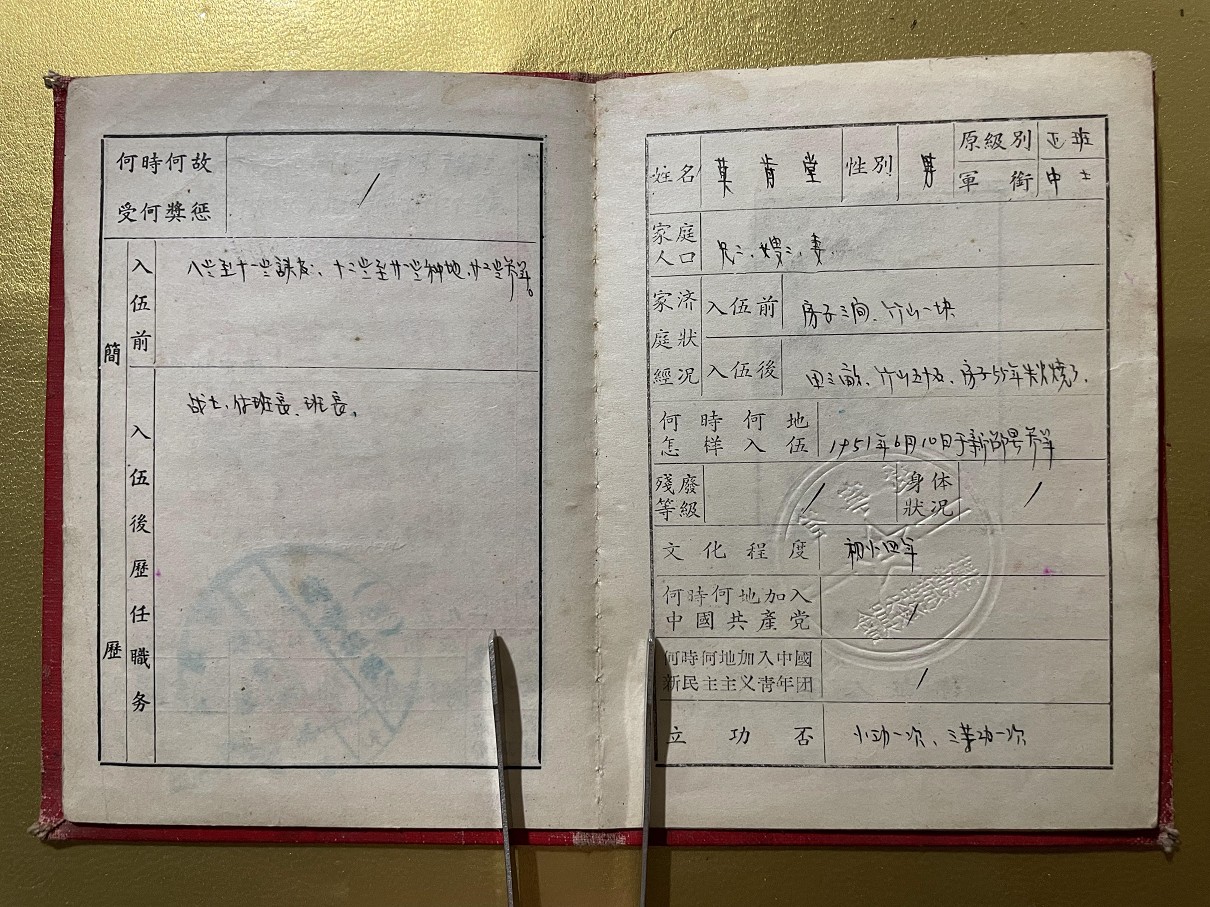 何時何故
受何獎惩
/
簡歷
入伍前
八岁至十一岁讀书、十二岁至廿一岁种地、廿二岁参军。
入伍後歷任職务
战士、付班長、班長。
姓名
葉肯堂
性別
男
原級別
正班
軍銜
中士
家庭
人口
兄二、嫂二、妻
家庭經济狀況
入伍前
房子三间、竹山一块
入伍後
田三畝、竹山、房子55年失火燒了.
何時何地
怎样入伍
1951年6月10日于新部号参军
殘廢
等級
/
身体
狀況
/
文化程度
初小四年
何時何地加入
中國共產党
/
何時何地加入中國
新民主主义青年团
/
立功否
小功一次、三等功一次